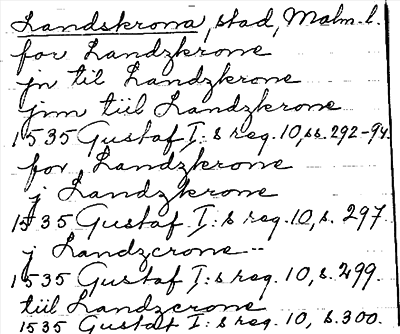 Landskrona, stad, Malm. l.
for Landzkrone
jn til Landzkrone
jnn tiil Landzkrone
1535 Gustaf I:s reg. 10, ss. 292-94.
for Landzkrone
j Landzkrone
1535 Gustaf I:s reg. 10, s. 297.
j Landzcrone--
1535 Gustaf I:s reg. 10, s. 299.
tiil Landzcrone
1535 Gustaf I:s reg. 10, s. 300.